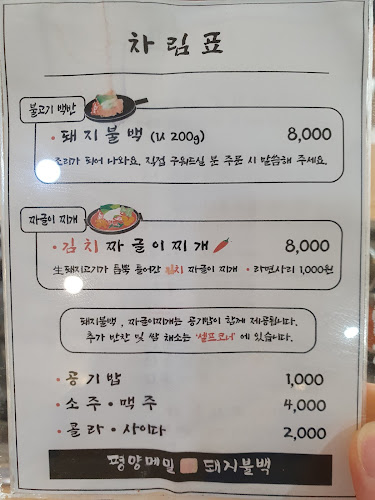 차림표
불고기 백반
• 돼지불백 (1人 200g) 8,000
조리가 되어 나와요. 직접 구워드실 분 주문 시 말씀해 주세요.
짜글이 찌개
• 김치짜글이찌개 8,000
生돼지고기가 듬뿍 들어간 김치 짜글이 찌개 • 라면사리 1,000원
돼지불백, 짜글이찌개는 공기밥이 함께 제공됩니다.
추가 반찬 및 쌈 채소는 '셀프코너'에 있습니다.
• 공기밥 1,000
• 소주 • 맥주 4,000
• 콜라 • 사이다 2,000
평양메밀 돼지불백